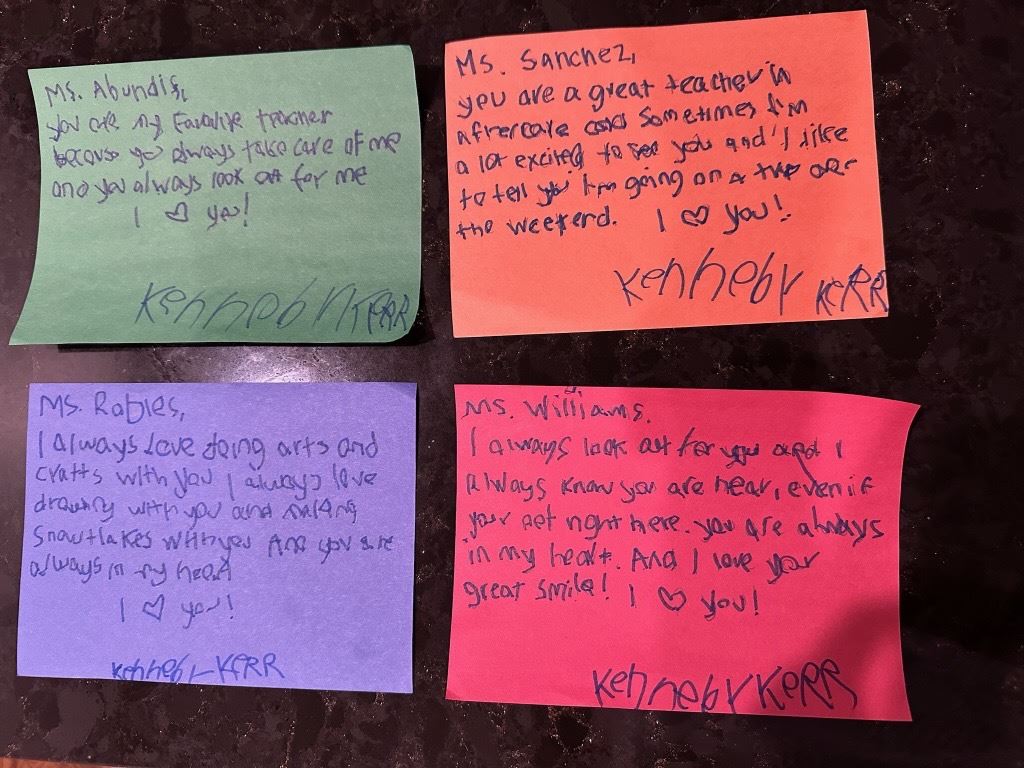 Ms. Abundis,
you are my Favorite teacher
because you always take care of me
and you always look out for me
I ♡ you!
Kennedy KERR
Ms. Sanchez,
you are a great teacher in
aftercare and Sometimes I'm
a lot excited to see you and I like
to tell you I'm going on a trip over
the weekend. I ♡ you!
Kennedy KERR
Ms. Robles,
I always Love doing arts and
crafts with you I always love
drawing with you and making
snowflakes with you And you are
always in my heart
I ♡ you!
Kennedy KERR
Ms. Williams.
I always look out for you and I
always know you are hear, even if
your not right here. you are always
in my heart. And I love your
great smile! I ♡ you!
Kennedy KERR